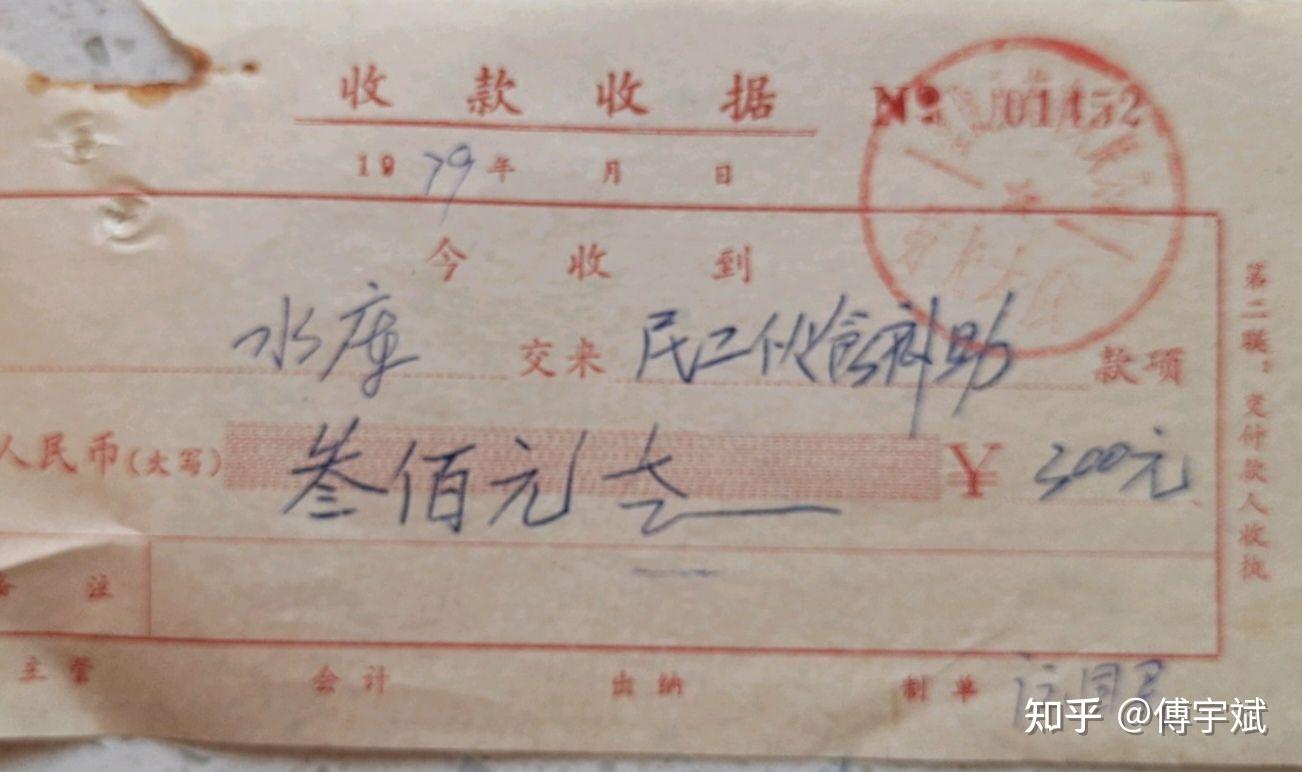 收款收据 № 01452
1979年 月 日
今收到
水库 交来 民工伙食补助 款项
人民币(大写) 叁佰元 ¥ 300元
备注
主管 会计 出纳 制单
第二联:交付款人收执
知乎 @傅宇斌